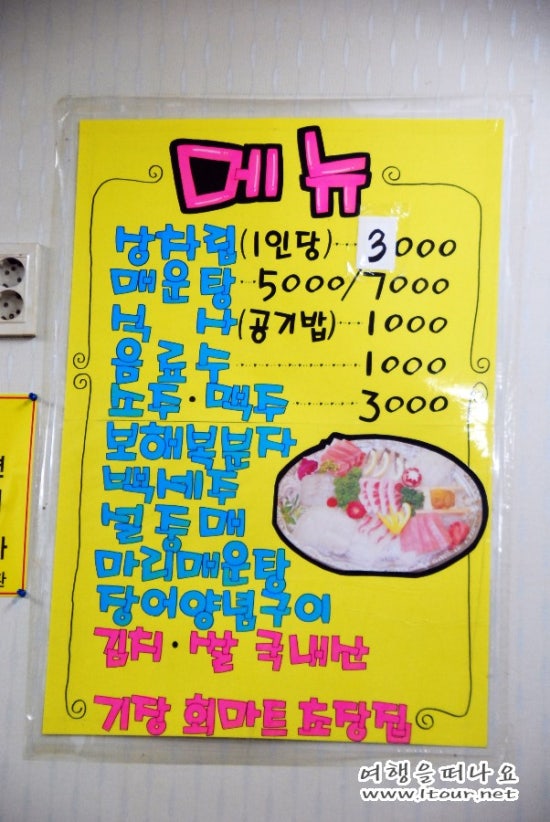 메뉴
상차림(1인당)···3000
매운탕···5000/7000
식사(공기밥)···1000
음료수·········1000
소주·맥주·········3000
보해복분자
백세주
설중매
마리매운탕
장어양념구이
김치·쌀 국내산
기장 회마트 초장집
여행을떠나요
www.1tour.net